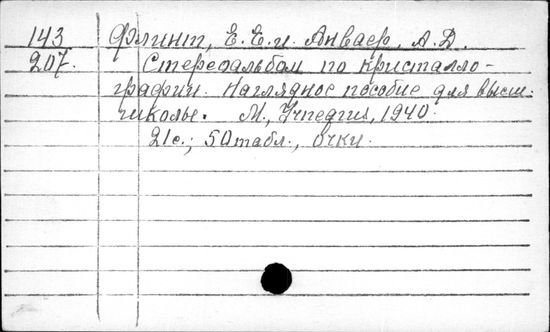 143 Флинт, Е.Е. и Анваер, А.Д.
207. Стереоальбом по кристалло-
графии. Наглядное пособие для высш.
школы. М., Учпедгиз, 1940.
21с.; 50табл., очки.